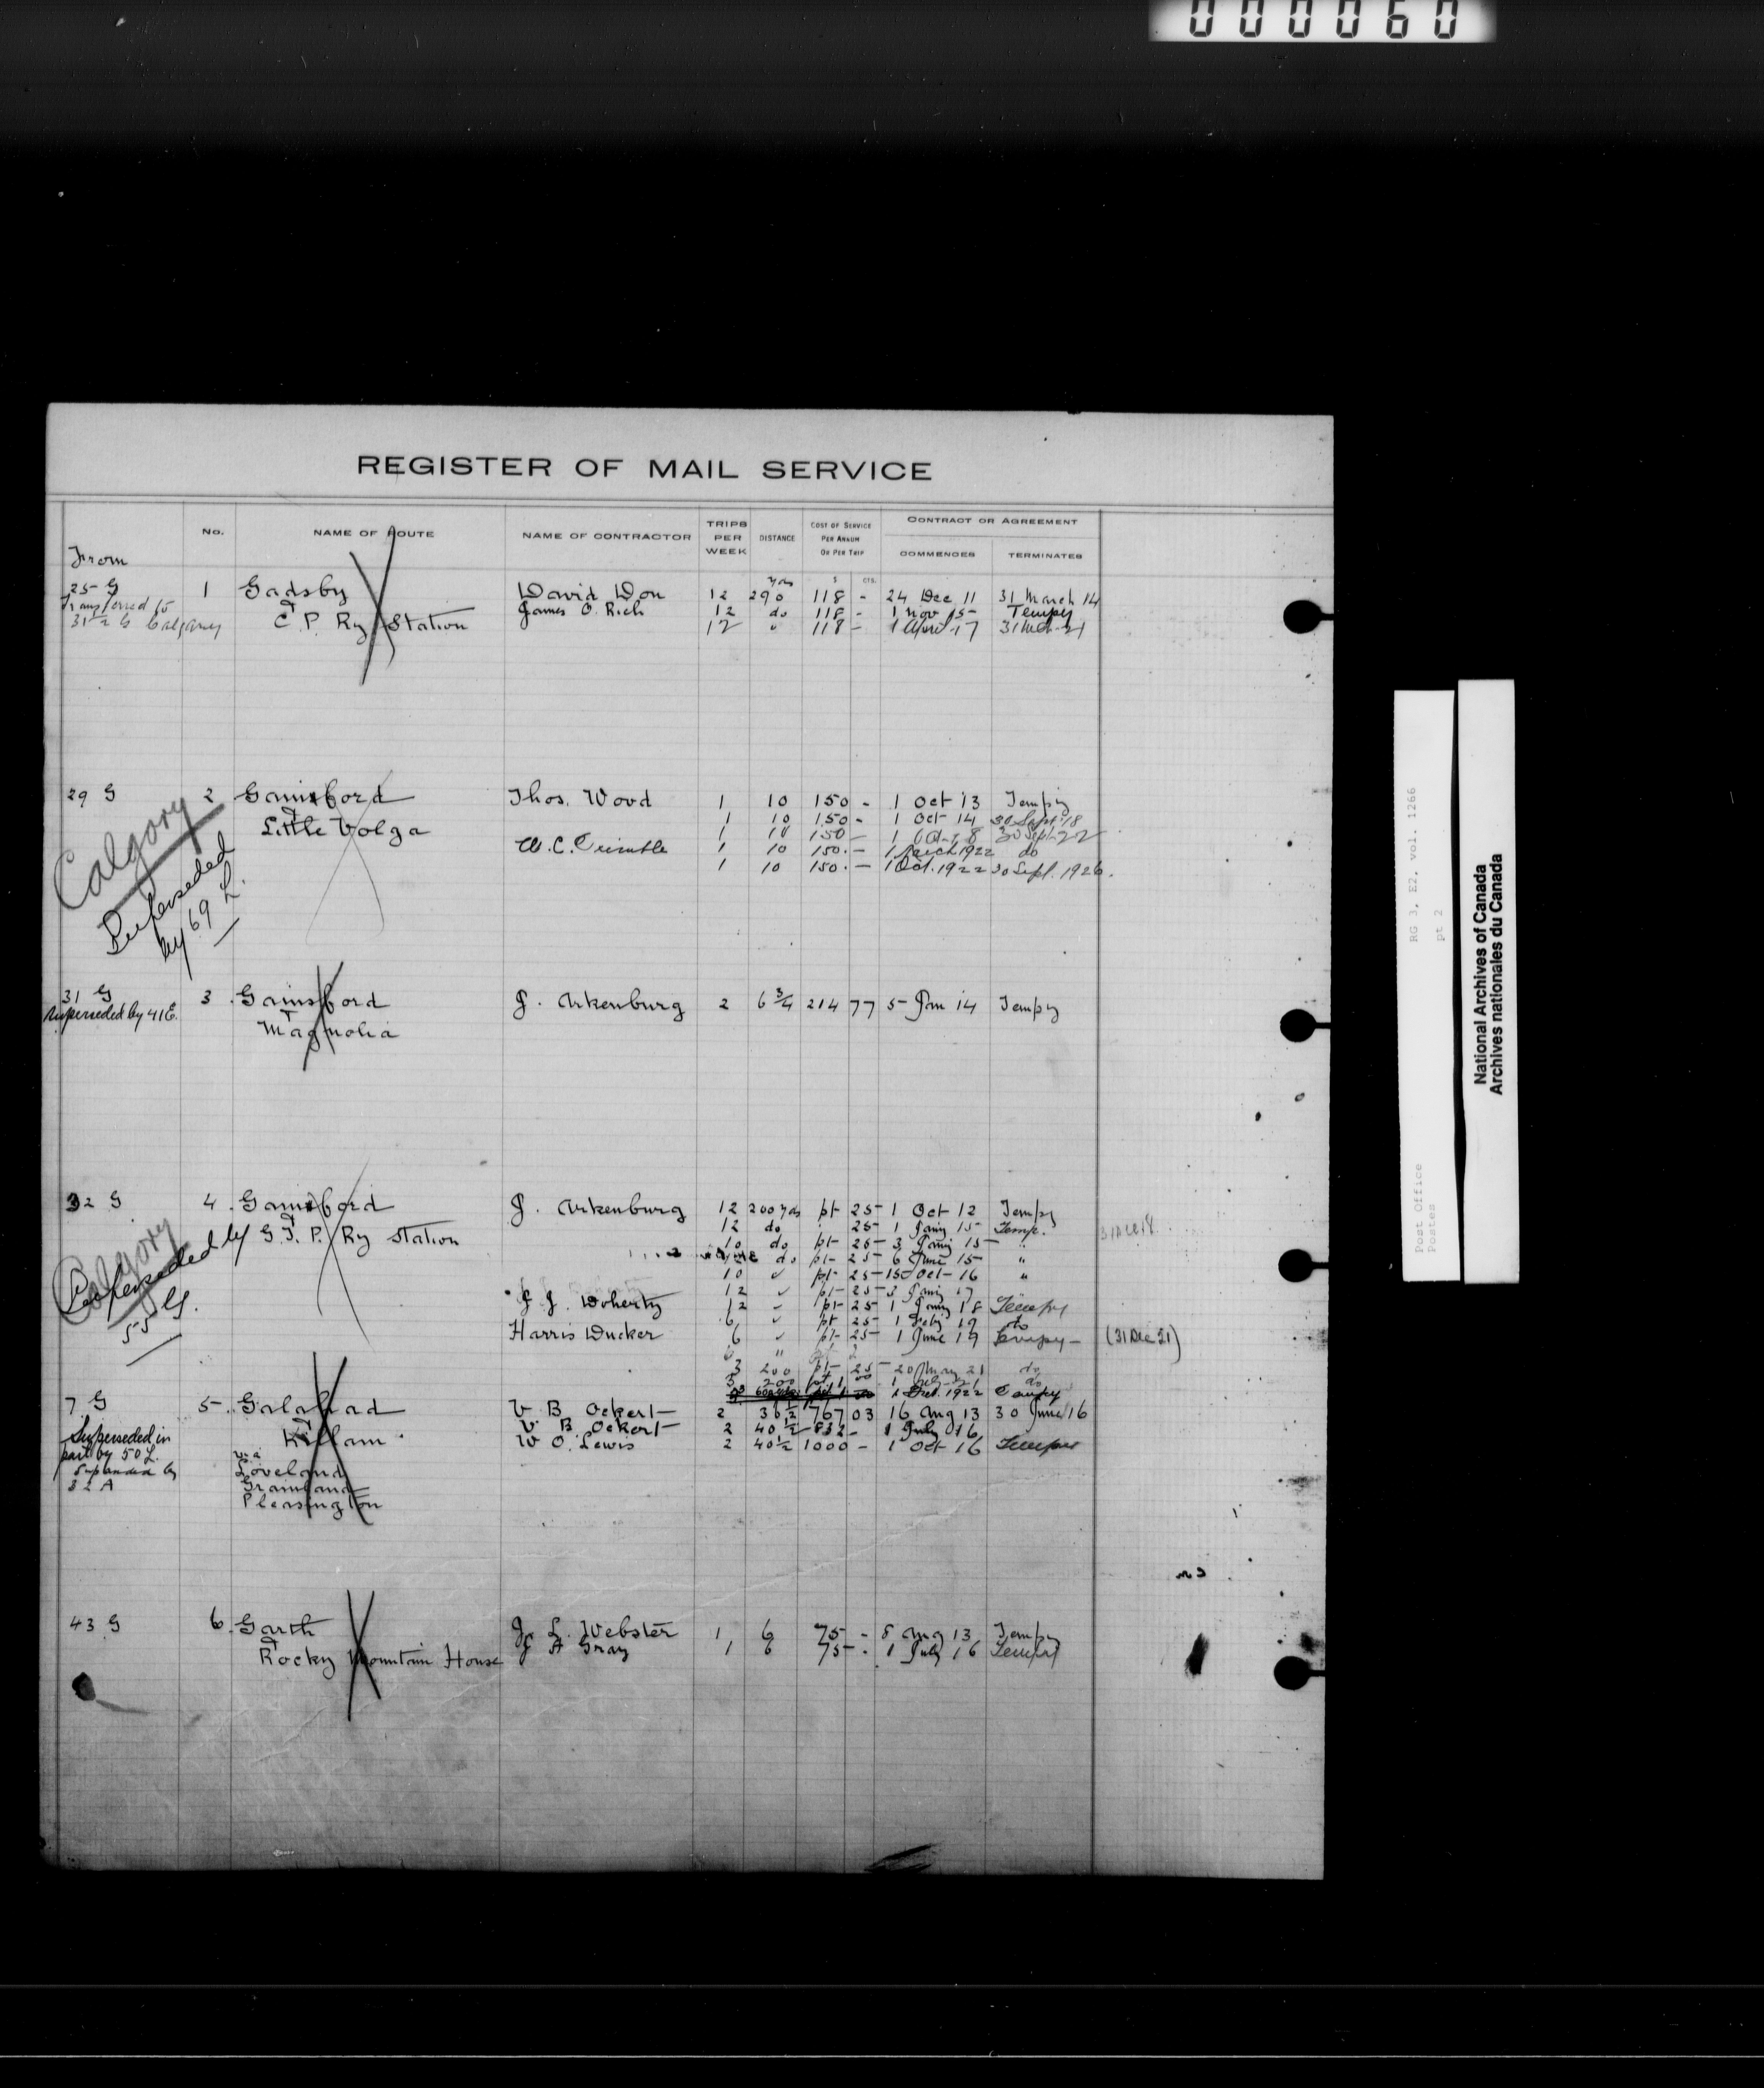 000060
REGISTER OF MAIL SERVICE
From
No.
NAME OF ROUTE
NAME OF CONTRACTOR
TRIPS PER WEEK
DISTANCE
COST OF SERVICE PER ANNUM OR PER TRIP
CONTRACT OR AGREEMENT
COMMENCES
TERMINATES
yds $ cts.
25 G 1 Gadsby David Don 12 290 118 - 24 Dec 11 31 March 14
Transferred to & James O. Rich 12 do 118 - 1 Nov 15 Tempy
31½ G Calgary C. P. Ry Station 12 " 118 - 1 April 17 31 Mch 21
29 G 2 Gainsford Thos. Wood 1 10 150 - 1 Oct 13 Tempy
& 1 10 150 - 1 Oct 14 30 Sept 18
Little Volga 1 10 150 - 1 Oct 18 30 Sept 22
W. C. Trimble 1 10 150. - 1 March 1922 do
1 10 150. - 1 Oct. 1922 30 Sept. 1926.
Calgary
Superseded
by 69 L.
31 G 3 Gainsford J. Arkenburg 2 6¾ 214 77 5 Jan 14 Tempy
Superseded by 41 E. &
Magnolia
32 G 4 Gainsford J. Arkenburg 12 200 yds pt 25 1 Oct 12 Tempy
& 12 do 25 1 Jany 15 Temp.
G. T. P. Ry Station 10 do pt 25 3 Jany 15 "
do pt 25 6 June 15 "
10 " pt 25 15 Oct 16 "
12 " pt 25 3 Jany 17
J. J. Doherty 12 " pt 25 1 Jany 18 Tempy
6 " pt 25 1 July 19 do
Harris Ducker 6 " pt 25 1 June 19 Tempy - (31 Dec 21)
6 "
3 200 pt 25 20 May 21 do
3 200 pt 1 00 1 July 21 do
1 Dec. 1922 Tempy
Calgary
Superseded by
55 G.
7 G 5. Galahad V. B. Ockert 2 36½ 767 03 16 Aug 13 30 June 16
& V. B. Ockert 2 40½ 832 - 1 July 16
Killam W. O. Lewis 2 40½ 1000 - 1 Oct 16 Tempy
Superseded in
part by 50 L.
Superseded by
32 A
via
Loveland
Grainland
Pleasington
43 G 6. Garth J. L. Webster 1 6 75 - 8 Aug 13 Tempy
& J A Gray 1 6 75 - 1 July 16 Tempy
Rocky Mountain House
RG 3, E2, vol. 1266
pt 2
Post Office
Postes
National Archives of Canada
Archives nationales du Canada